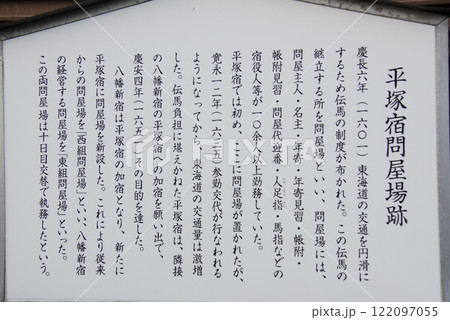 平塚宿問屋場跡
慶長六年（一六〇一）東海道の交通を円滑に
するため伝馬の制度が布かれた。この伝馬の
継立する所を問屋場といい、問屋場には、
問屋主人・名主・年寄・年寄見習・帳附・
帳附見習・問屋代迎番・人足指・馬指などの
宿役人等が一〇余人以上勤務していた。
平塚宿では初め、ここに問屋場が置かれたが、
寛永一二年（一六三五）参勤交代が行なわれる
ようになってから、東海道の交通量は激増
した。伝馬負担に堪えかねた平塚宿は、隣接
の八幡新宿の平塚宿への加宿を願い出て、
慶安四年（一六五一）その目的を達した。
八幡新宿は平塚宿の加宿となり、新たに
平塚宿に問屋場を新設した。これにより従来
からの問屋場を「西組問屋場」といい、八幡新宿
の経営する問屋場を「東組問屋場」といった。
この両問屋場は十日目交替で執務したという。
PIXTA
122097055